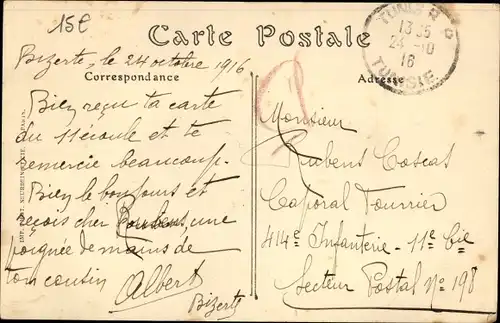 15€
Carte Postale
TUNIS R.P.
13 35
24 - 10
16
TUNISIE
Bizerte, le 24 octobre 1916
Correspondance
Adresse
Bien reçu ta carte
du 11 écoulé et te
remercie beaucoup.
Bien le bonjours et
reçois cher Rubens, une
poignée de mains de
ton cousin Albert
Bizerte
Monsieur
Rubens Coscas
Caporal Fourrier
414e Infanterie - 11e Cie
Secteur Postal No 198